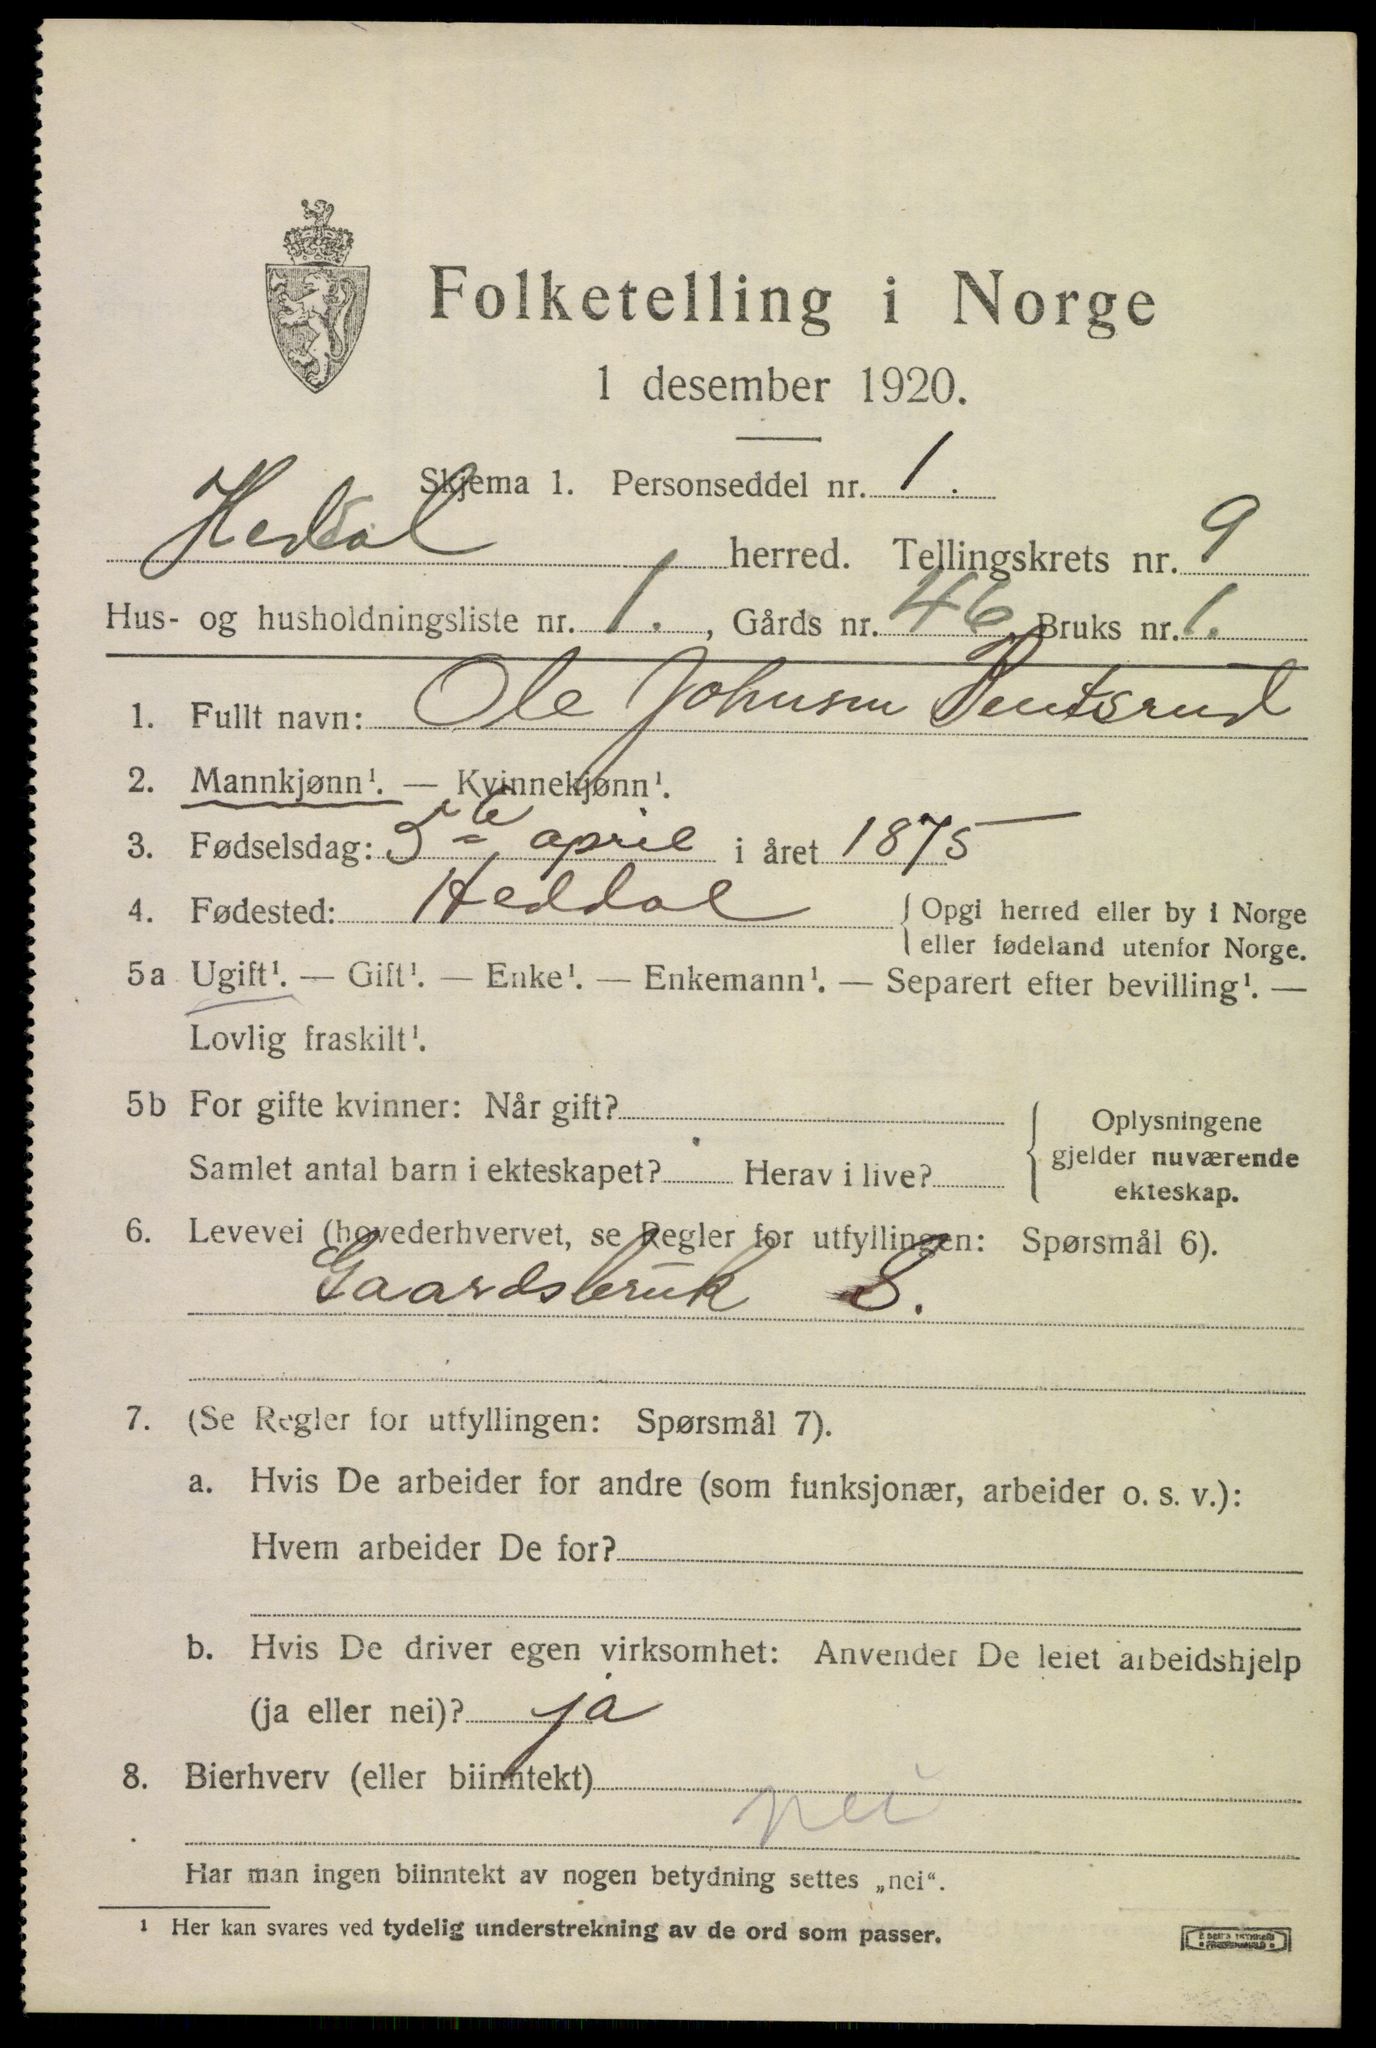 Folketelling i Norge
1 desember 1920.
Skjema 1. Personseddel nr. 1.
Heddal herred. Tellingskrets nr. 9
Hus- og husholdningsliste nr. 1., Gårds nr. 46, Bruks nr. 1.
1. Fullt navn: Ole Johnsen
2. Mannkjønn¹. — Kvinnekjønn¹.
3. Fødselsdag: 5te april i året 1875
4. Fødested: Heddal { Opgi herred eller by i Norge
eller fødeland utenfor Norge.
5a Ugift¹. — Gift¹. — Enke¹. — Enkemann¹. — Separert efter bevilling¹. —
Lovlig fraskilt¹.
5b For gifte kvinner: Når gift?
Samlet antal barn i ekteskapet? Herav i live?
Oplysningene
gjelder nuværende
ekteskap.
6. Levevei (hovederhvervet, se Regler for utfyllingen: Spørsmål 6).
Gaardsbruk S.
7. (Se Regler for utfyllingen: Spørsmål 7).
a. Hvis De arbeider for andre (som funksjonær, arbeider o. s. v.):
Hvem arbeider De for?
b. Hvis De driver egen virksomhet: Anvender De leiet arbeidshjelp
(ja eller nei)? ja
8. Bierhverv (eller biinntekt)
nei
Har man ingen biinntekt av nogen betydning settes „nei“.
¹ Her kan svares ved tydelig understrekning av de ord som passer.